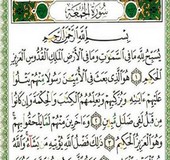 سُورَةُ الْجُمُعَةِ
بِسْمِ اللَّهِ الرَّحْمَٰنِ الرَّحِيمِ
يُسَبِّحُ لِلَّهِ مَا فِي السَّمَٰوَٰتِ وَمَا فِي الْأَرْضِ الْمَلِكِ الْقُدُّوسِ الْعَزِيزِ
الْحَكِيمِ ۝ هُوَ الَّذِي بَعَثَ فِي الْأُمِّيِّينَ رَسُولًا مِّنْهُمْ يَتْلُوا
عَلَيْهِمْ ءَايَٰتِهِ وَيُزَكِّيهِمْ وَيُعَلِّمُهُمُ الْكِتَٰبَ وَالْحِكْمَةَ وَإِن كَانُوا
مِن قَبْلُ لَفِي ضَلَٰلٍ مُّبِينٍ ۝ وَءَاخَرِينَ مِنْهُمْ لَمَّا يَلْحَقُوا بِهِمْ
وَهُوَ الْعَزِيزُ الْحَكِيمُ ۝ ذَٰلِكَ فَضْلُ اللَّهِ يُؤْتِيهِ مَن يَشَاءُ وَاللَّهُ